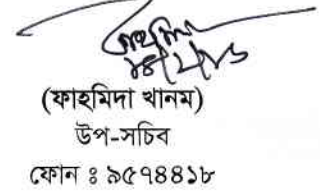 (ফাহমিদা খানম)
উপ-সচিব
ফোন ঃ ৯৫৭৪৪১৮